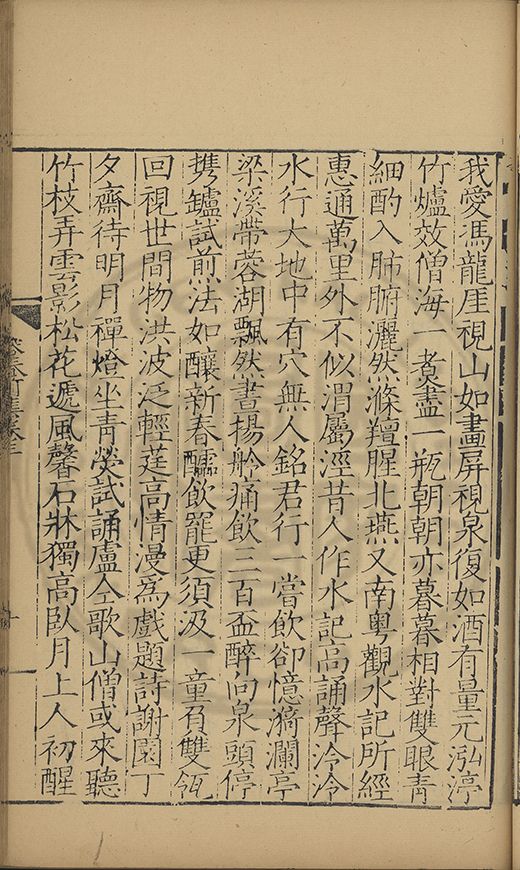 我愛馮龍厓視山如畫屏視泉復如酒有量元泓渟
竹爐效僧海一煑盡一瓶朝朝亦暮暮相對雙眼青
細酌入肺腑灑然滌羶腥北燕又南粤觀水記所經
惠通萬里外不似渭屬涇昔人作水記高誦聲泠泠
水行大地中有穴無人銘君行一當飲卻憶漪瀾亭
梁溪帶蓉湖飄然晝揚舲痛飲三百盃醉向泉頭停
携鑪試煎法如釀新春醽飲罷更須汲一童負雙瓴
回視世間物洪波泛輕莛高情漫爲戲題詩謝園丁
夕齋待明月禪燈坐青熒試誦盧仝歌山僧或來聽
竹枝弄雲影松花遞風馨石牀獨高臥月上人初醒